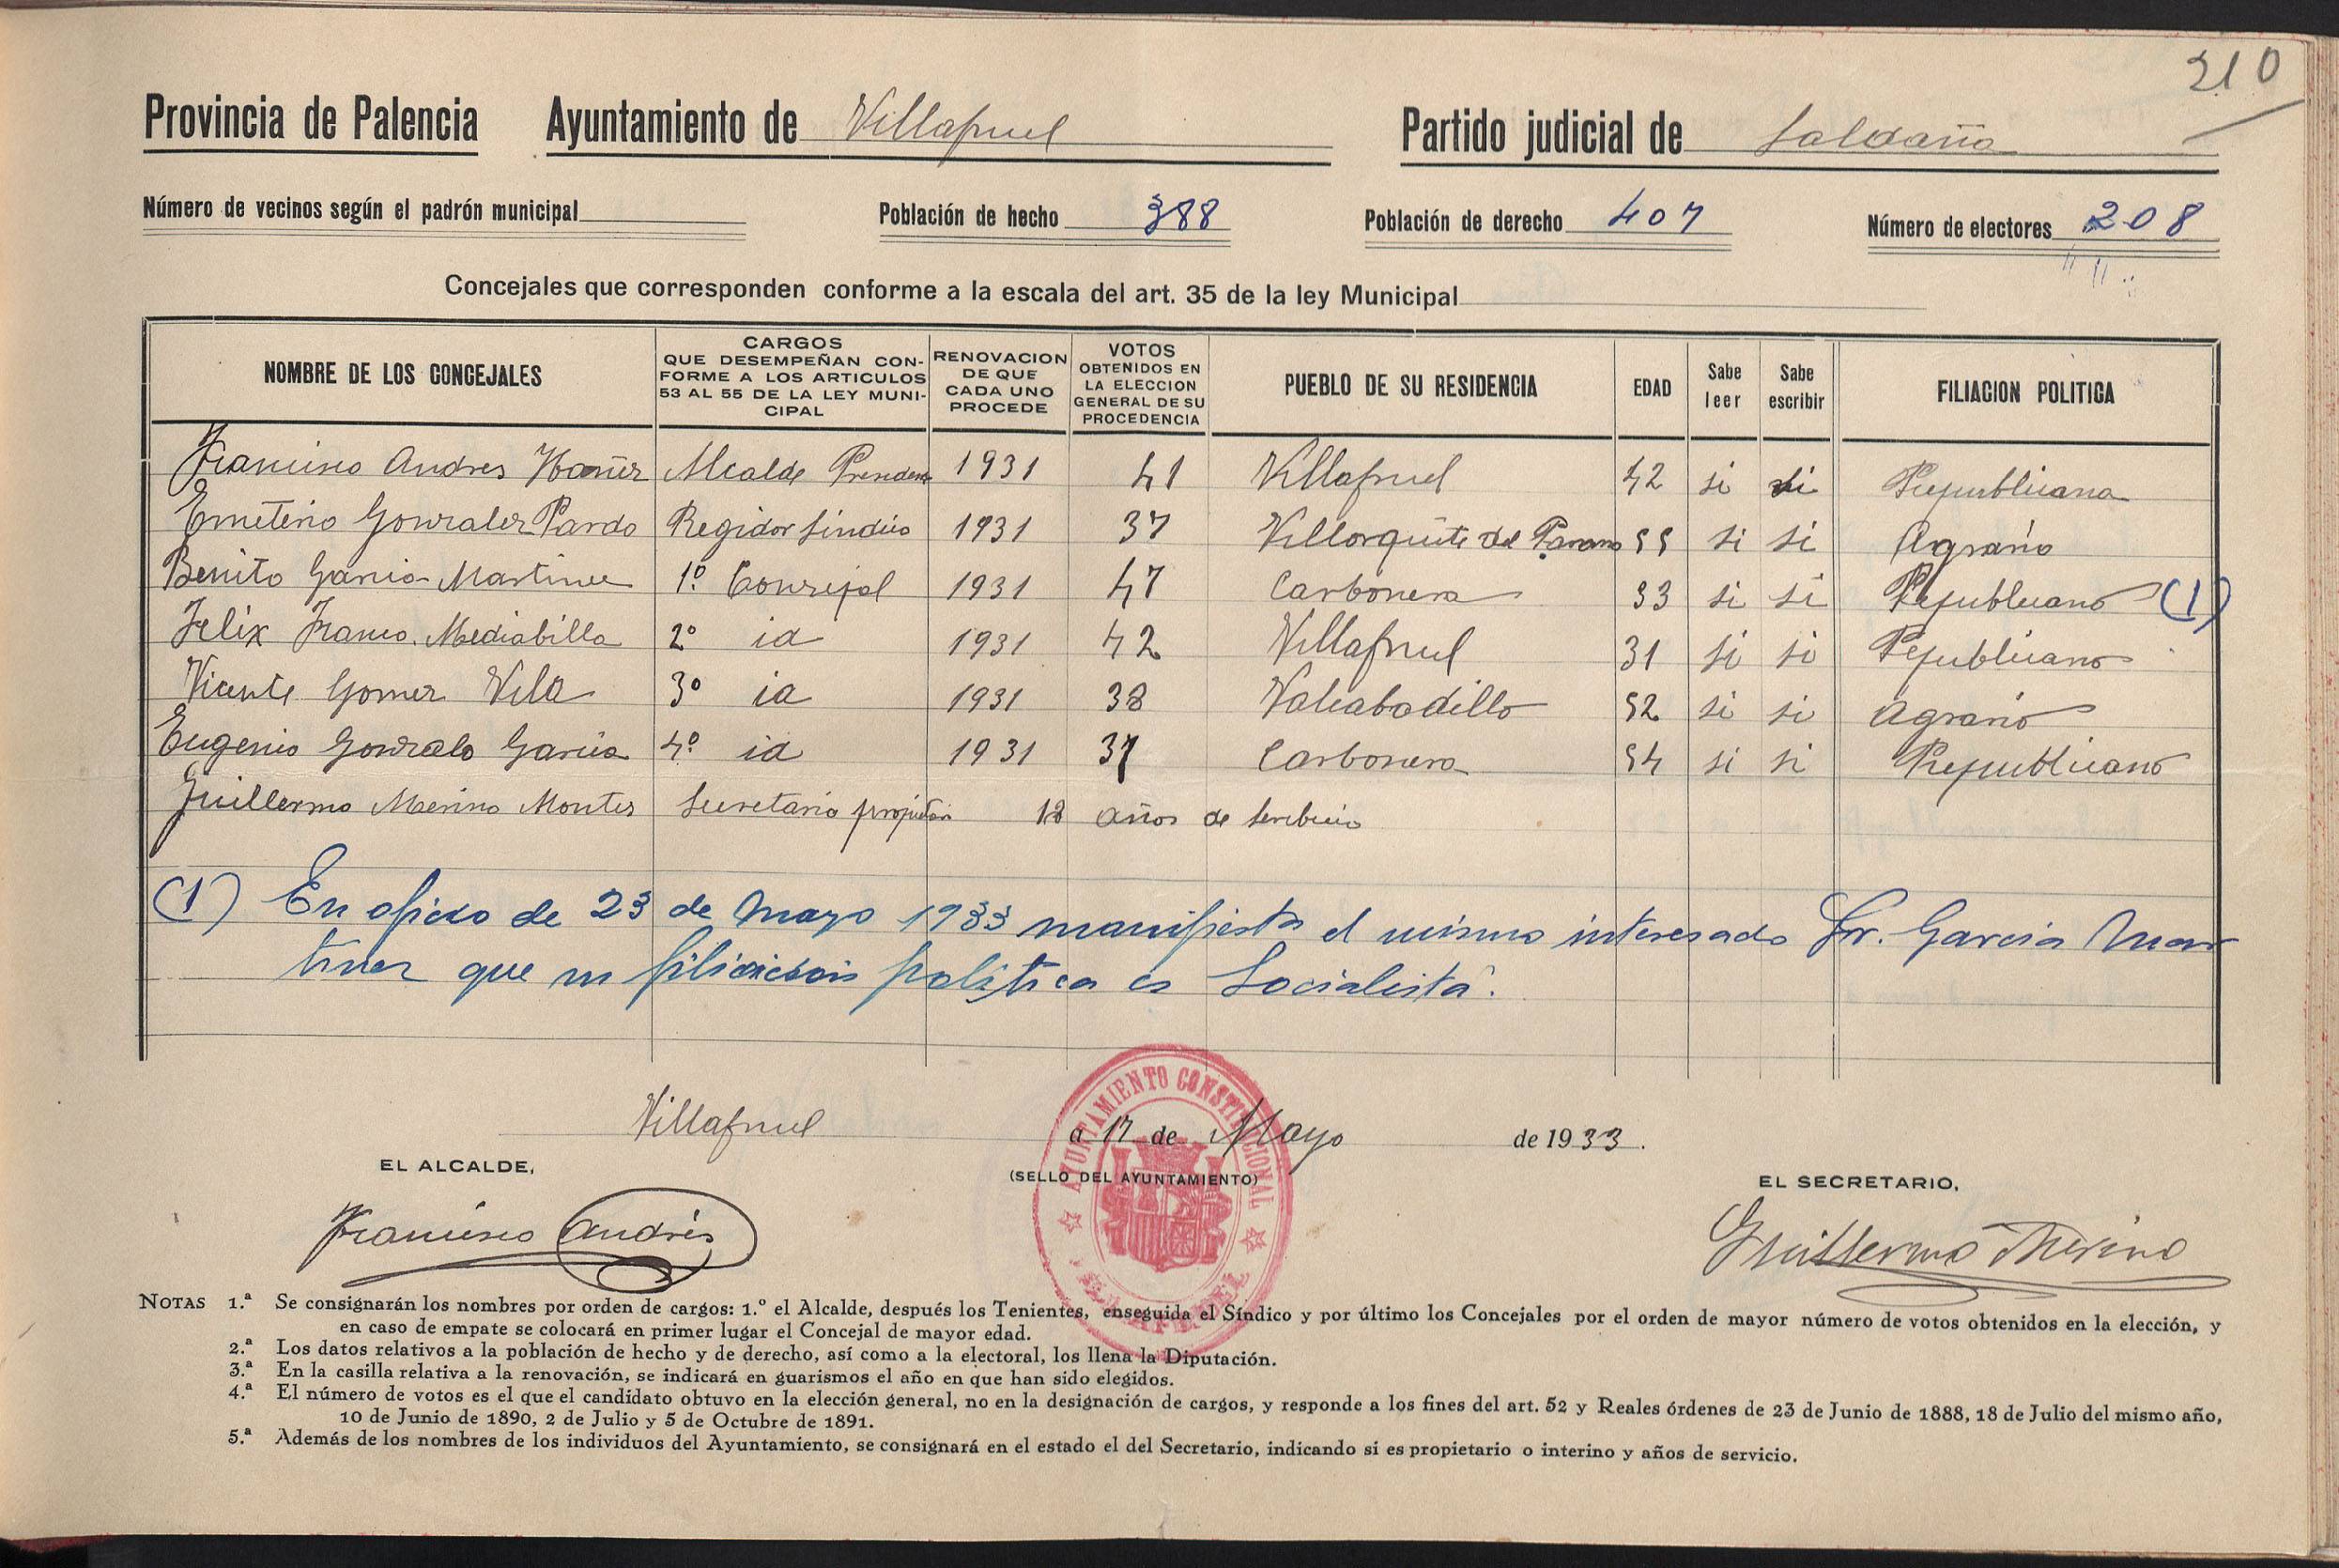 210
Provincia de Palencia Ayuntamiento de Villapruel Partido judicial de Saldaña
Número de vecinos según el padrón municipal Población de hecho 388 Población de derecho 407 Número de electores 208
Concejales que corresponden conforme a la escala del art. 35 de la ley Municipal
NOMBRE DE LOS CONCEJALES CARGOS QUE DESEMPEÑAN CONFORME A LOS ARTICULOS 53 AL 55 DE LA LEY MUNICIPAL RENOVACION DE QUE CADA UNO PROCEDE VOTOS OBTENIDOS EN LA ELECCION GENERAL DE SU PROCEDENCIA PUEBLO DE SU RESIDENCIA EDAD Sabe leer Sabe escribir FILIACION POLITICA
Francisco Andres Ybañez Alcalde Presidente 1931 41 Villapruel 42 si si Republicana
Emeterio Gonzalez Pardo Regidor Sindico 1931 37 Villorquite del Paramo 55 si si Agrario
Benito Garcia Martinez 1º Concejal 1931 47 Carbonera 33 si si Republicano (1)
Felix Franco Mediabilla 2º id 1931 42 Villapruel 31 si si Republicano
Vicente Gomez Vila 3º id 1931 38 Valcabadillo 52 si si Agrario
Eugenio Gonzalo Garcia 4º id 1931 37 Carbonera 54 si si Republicano
Guillermo Merino Montes Secretario propietari 18 años de serbicio
(1) En oficio de 23 de Mayo 1933 manifiesta el mismo interesado Sr. Garcia Mar
tinez que su filiación politica es Socialista.
Villapruel a 17 de Mayo de 1933.
AYUNTAMIENTO CONSTITUCIONAL
EL ALCALDE, (SELLO DEL AYUNTAMIENTO) EL SECRETARIO,
Francisco Andrés Guillermo Merino
NOTAS 1.ª Se consignarán los nombres por orden de cargos: 1.º el Alcalde, después los Tenientes, enseguida el Síndico y por último los Concejales por el orden de mayor número de votos obtenidos en la elección, y
en caso de empate se colocará en primer lugar el Concejal de mayor edad.
2.ª Los datos relativos a la población de hecho y de derecho, así como a la electoral, los llena la Diputación.
3.ª En la casilla relativa a la renovación, se indicará en guarismos el año en que han sido elegidos.
4.ª El número de votos es el que el candidato obtuvo en la elección general, no en la designación de cargos, y responde a los fines del art. 52 y Reales órdenes de 23 de Junio de 1888, 18 de Julio del mismo año,
10 de Junio de 1890, 2 de Julio y 5 de Octubre de 1891.
5.ª Además de los nombres de los individuos del Ayuntamiento, se consignará en el estado el del Secretario, indicando si es propietario o interino y años de servicio.